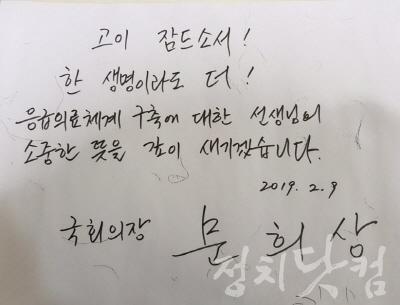 고이 잠드소서!
한 생명이라도 더!
응급의료체계 구축에 대한 선생님의
소중한 뜻을 깊이 새기겠습니다.
2019. 2. 9
국회의장 문 희 상
정치닷컴